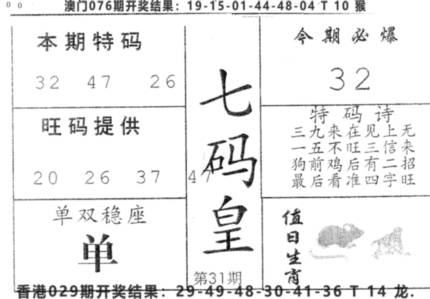 澳门076期开奖结果：19-15-01-44-48-04 T 10 猴
本期特码
32 47 26
旺码提供
20 26 37 47
单双稳座
单
七码皇
第31期
今期必爆
32
特码诗
三九来在见上无
一五不旺三信来
狗前鸡后有二招
最后看准四字旺
值日生肖
香港029期开奖结果：29-49-48-30-41-36 T 14 龙.